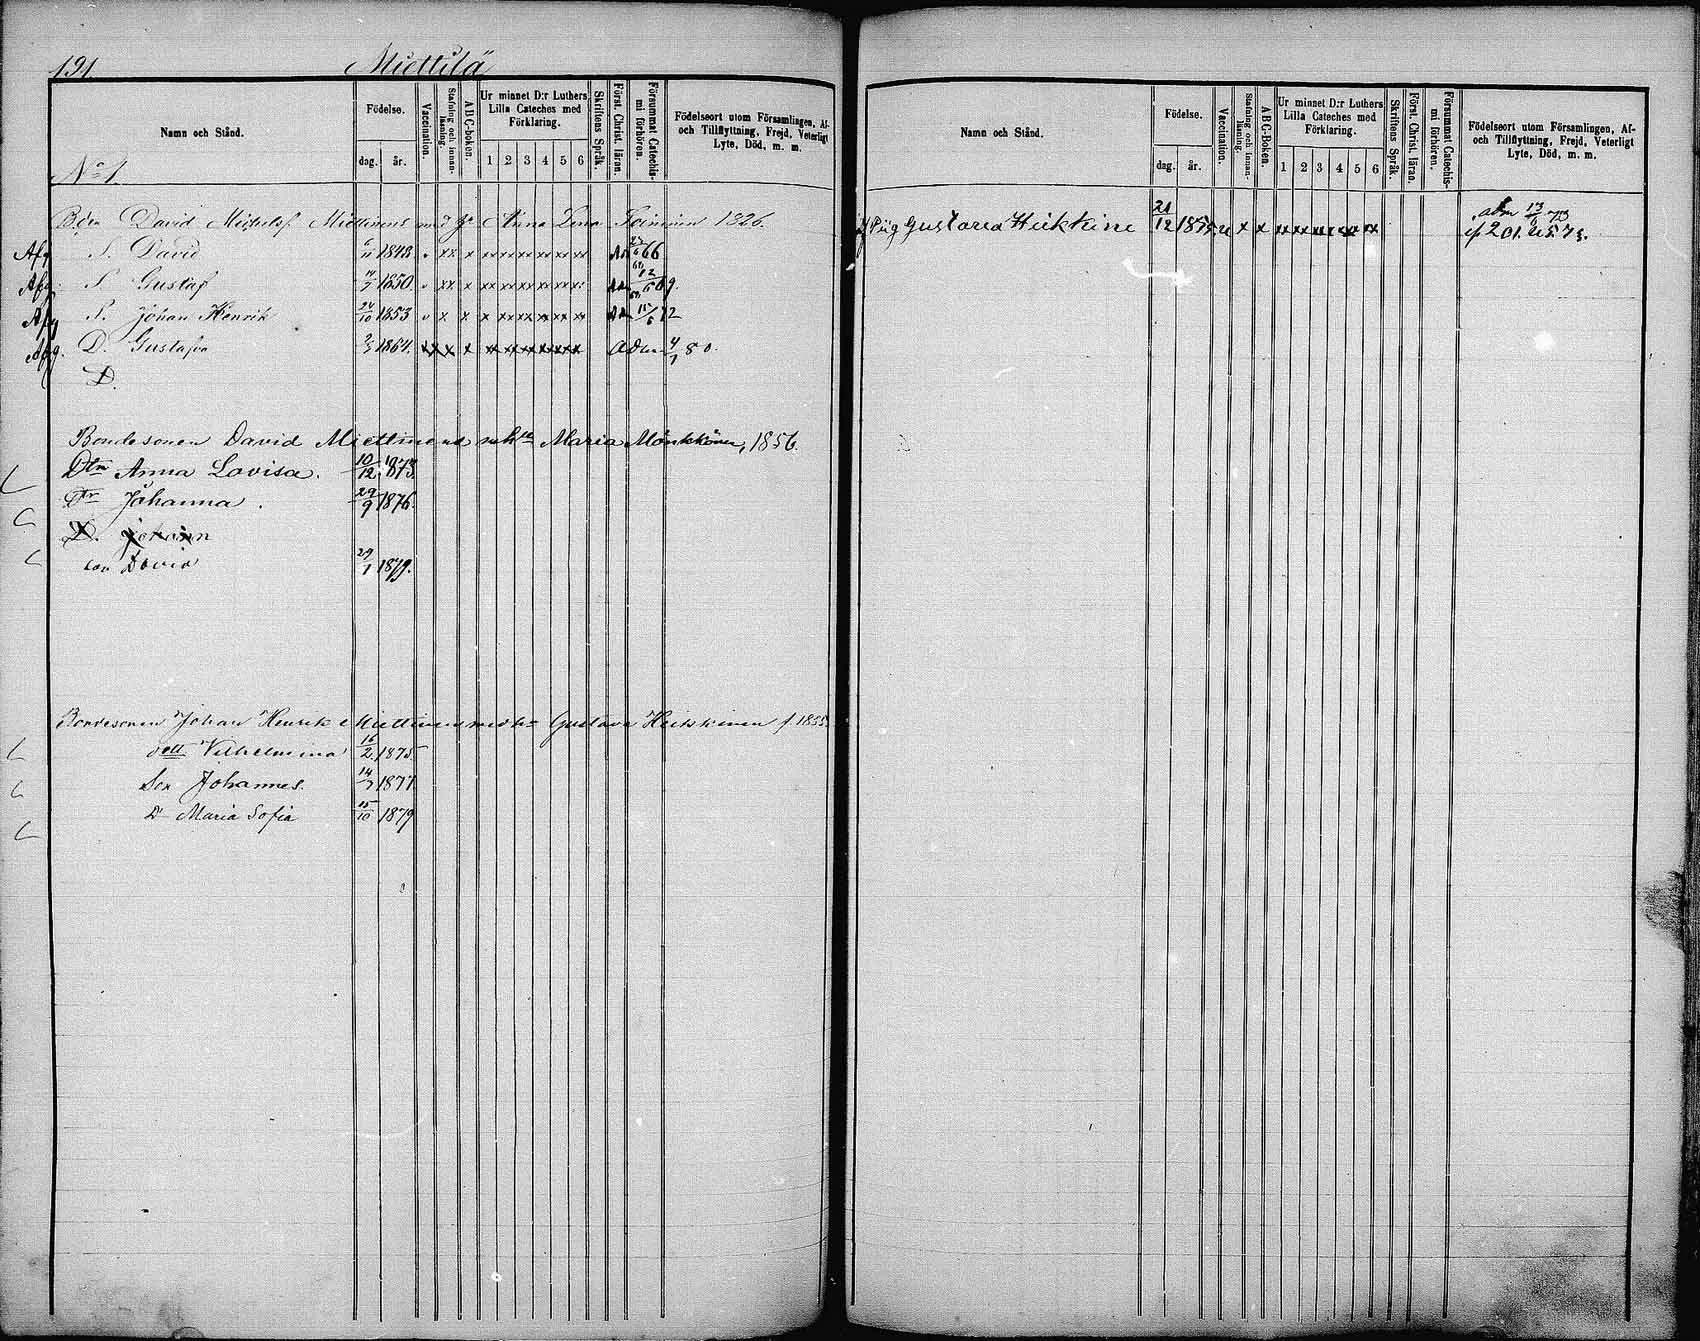 191 Miettilä
Namn och Stånd.
Födelse.
dag. år.
Vaccination.
Stafning och innanläsning.
ABC-boken.
Ur minnet D:r Luthers
Lilla Cateches med
Förklaring.
1 2 3 4 5 6
Skriftens Språk.
Först. Christ. läran.
Försummat Catechismi förhören.
Födelseort utom Församlingen, Af-
och Tillflyttning, Frejd, Veterligt
Lyte, Död, m. m.
No 1.
David Miettinens med Anna Lena Toivinen 1826.
Afg S. David 6/11 1848 66
Afg S. Gustaf 1850. 12/6 69.
Afg S. Johan Henrik 24/10 1853 15/6 72
Afg. D. Gustafva 1864. Adm 4/7 80.
D.
Bondesonen David Miettinens Maria Mönkkönen, 1856.
Dtn Anna Lovisa. 10/12 1873.
Dtr Johanna. 29/9 1876.
D. Johann
son David 29/1 1879.
Bondesonen Johan Henrik Miettinen med Gustava Heikkinen f. 1855.
dott Vilhelmina 16/2 1875
Son Johannes. 14/7 1877
D Maria Sofia 15/10 1879
Namn och Stånd.
Födelse.
dag. år.
Vaccination.
Stafning och innanläsning.
ABC-Boken.
Ur minnet D:r Luthers
Lilla Cateches med
Förklaring.
1 2 3 4 5 6
Skriftens Språk.
Först. Christ. läran.
Försummat Catechismi förhören.
Födelseort utom Församlingen, Af-
och Tillflyttning, Frejd, Veterligt
Lyte, Död, m. m.
Pig Gustava Heikkine 21/12 1855. adm 13/6 73